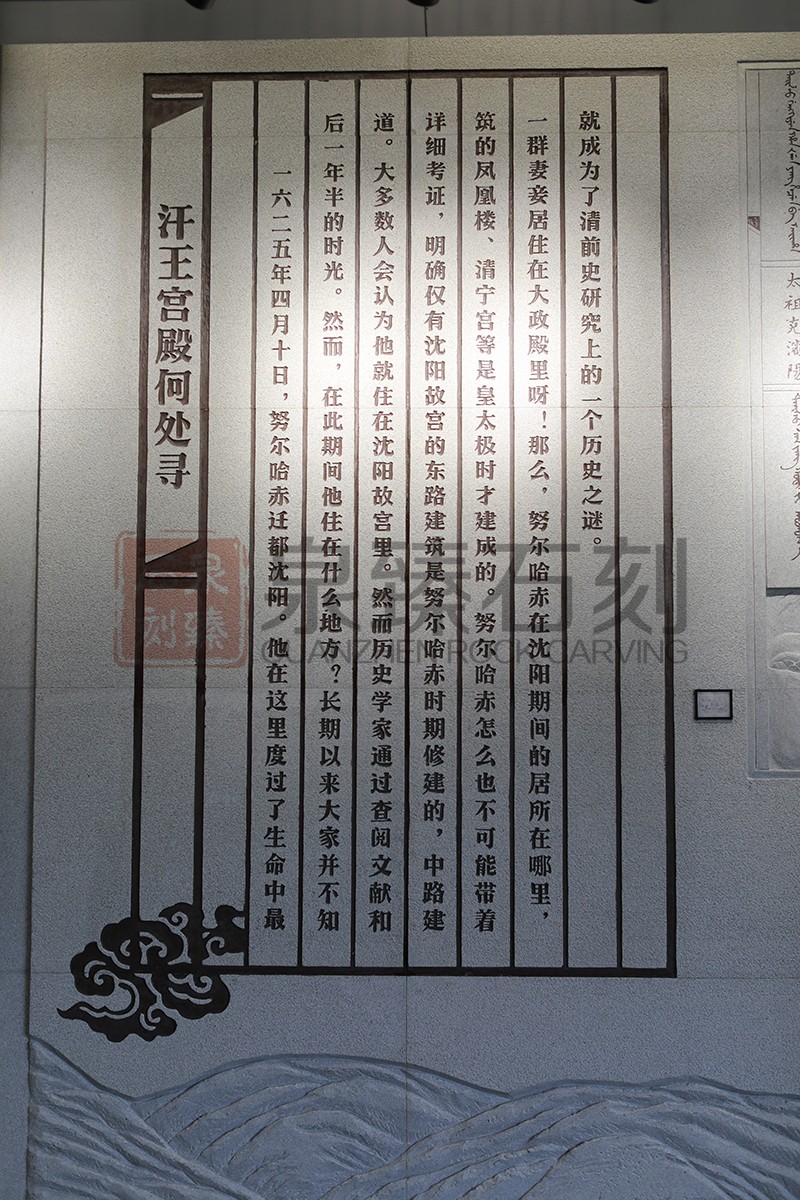 汗王宫殿何处寻
一六二五年四月十日，努尔哈赤迁都沈阳。他在这里度过了生命中最
后一年半的时光。然而，在此期间他住在什么地方？长期以来大家并不知
道。大多数人会认为他就住在沈阳故宫里。然而历史学家通过查阅文献和
详细考证，明确仅有沈阳故宫的东路建筑是努尔哈赤时期修建的，中路建
筑的凤凰楼、清宁宫等是皇太极时才建成的。努尔哈赤怎么也不可能带着
一群妻妾居住在大政殿里呀！那么，努尔哈赤在沈阳期间的居所在哪里，
就成为了清前史研究上的一个历史之谜。
太祖克瀋陽
泉臻石刻
QUANZHEN ROCK CARVING